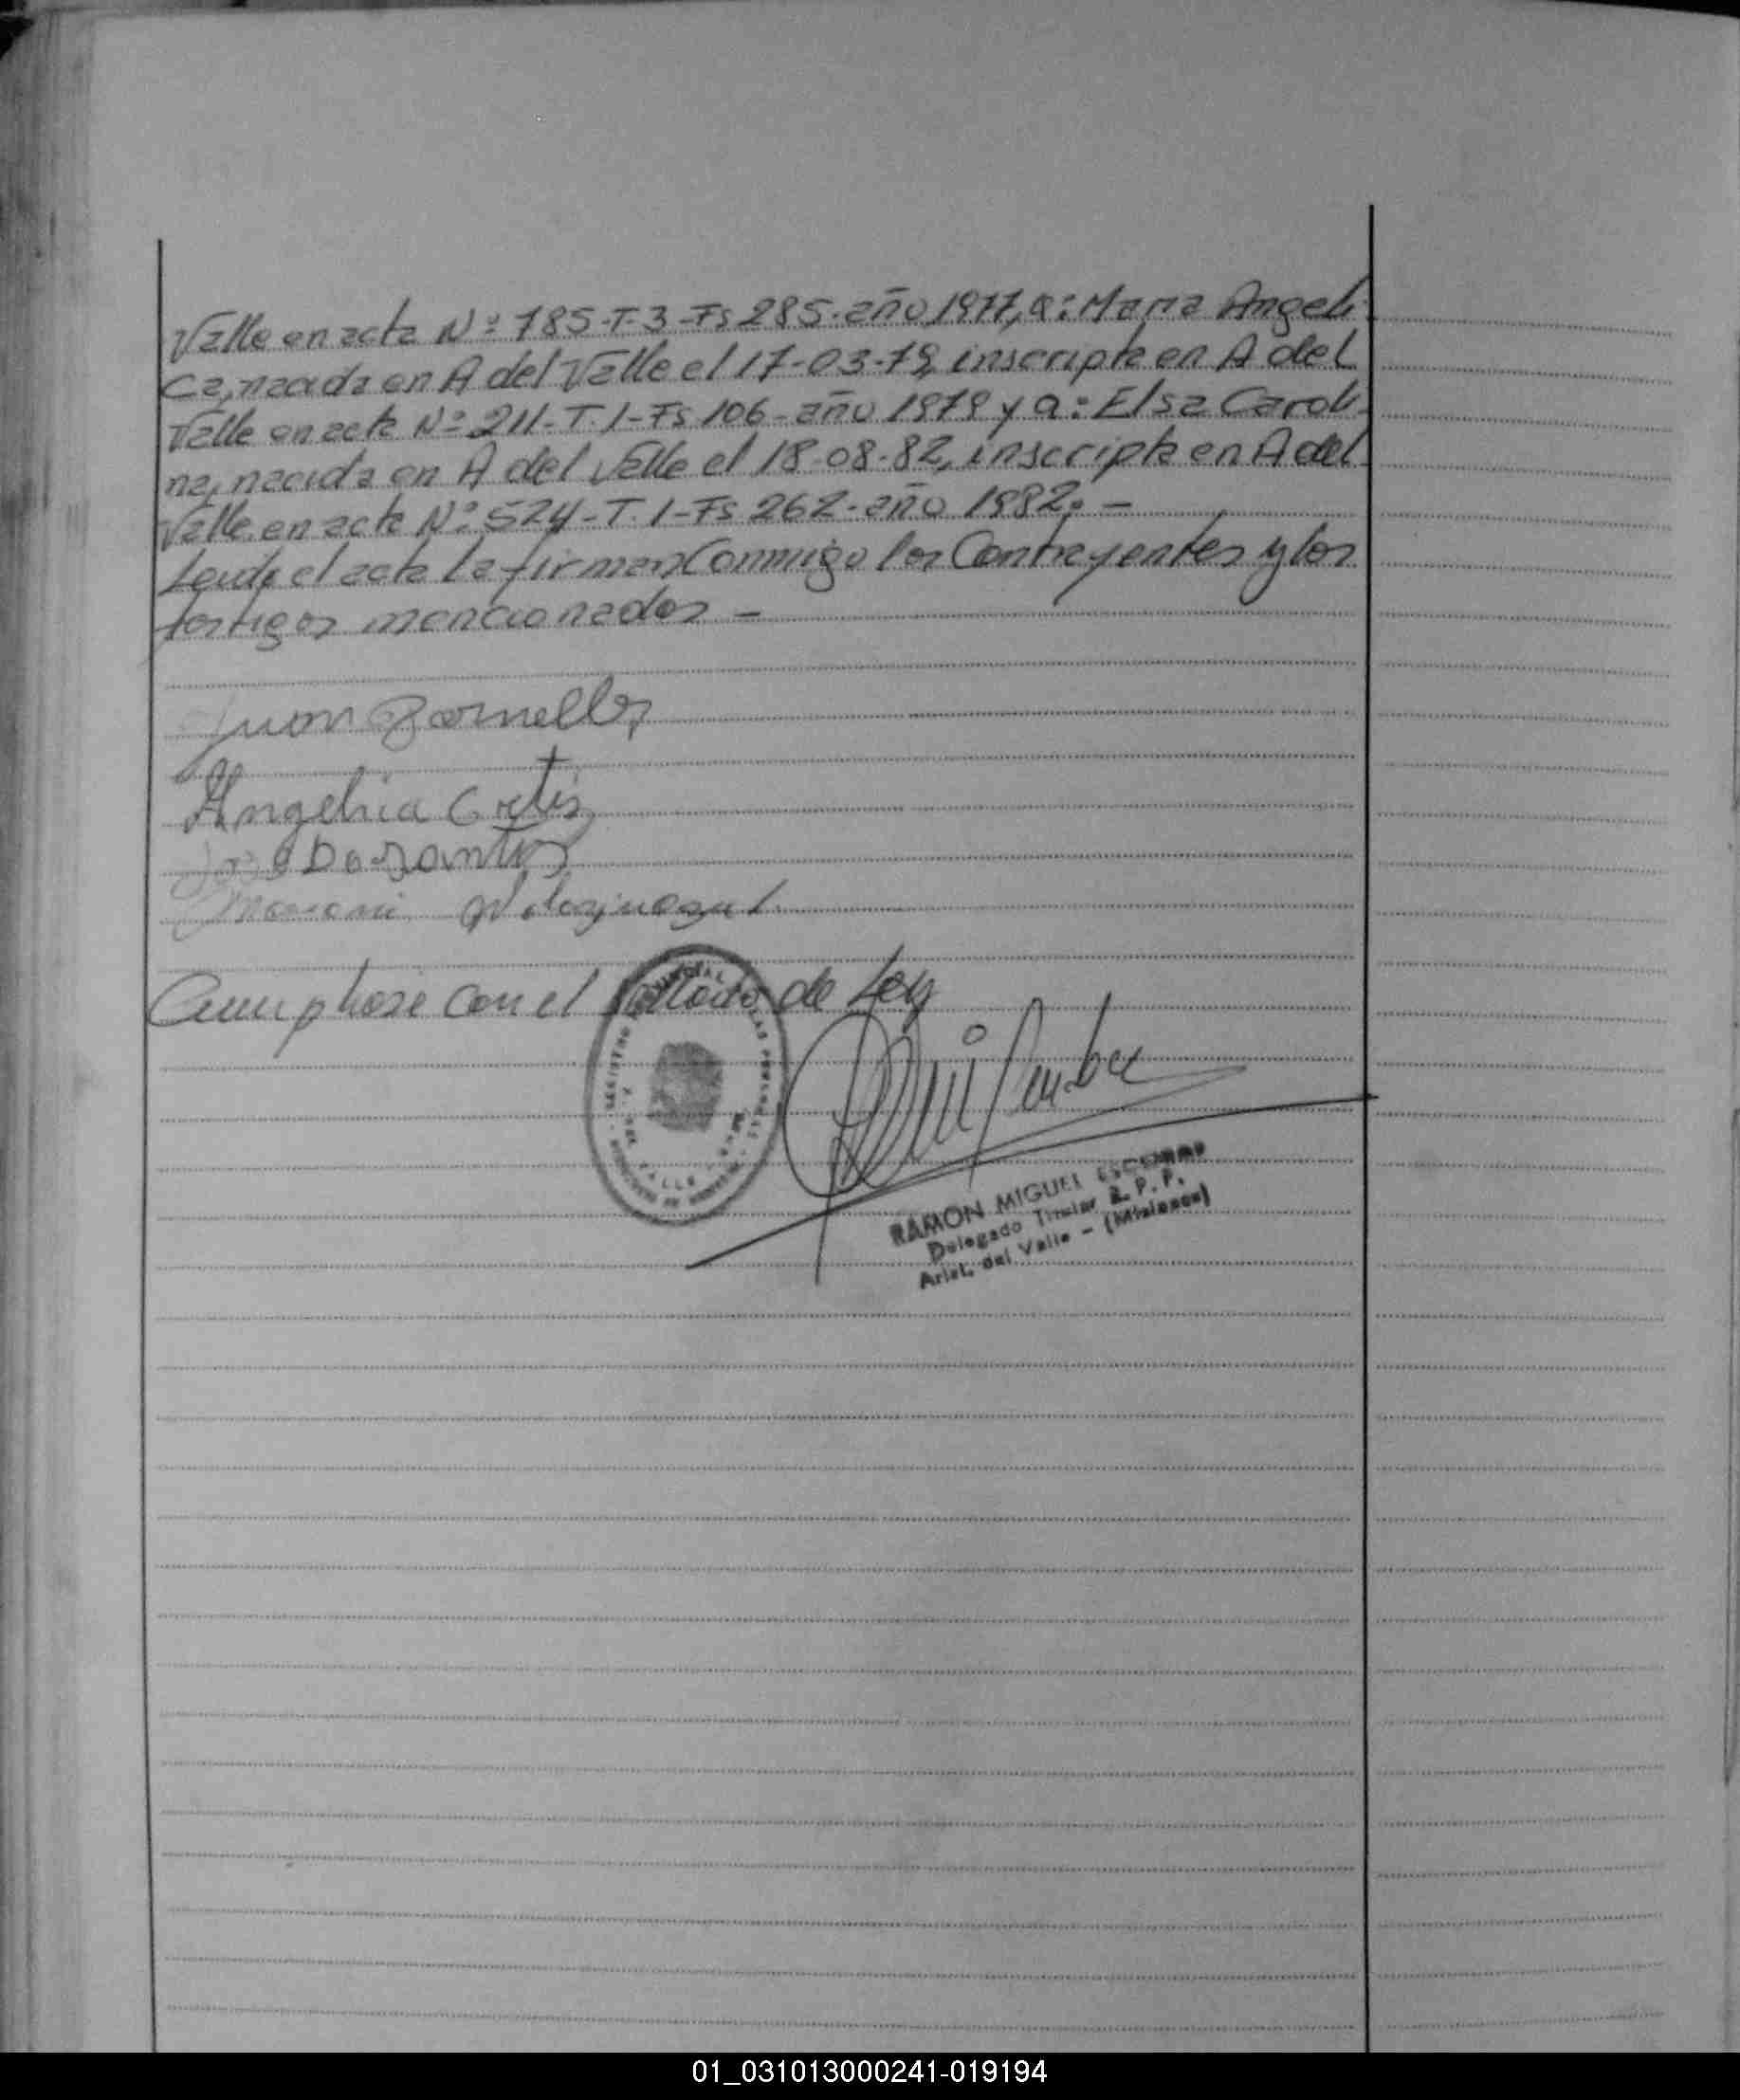 Valle en acta Nº 785-T-3-Fs 285-año 1977, a: Maria Angeli-
ca, nacida en A del Valle el 17-03-79, inscripta en A del
Valle en acta Nº 211-T.1-Fs 106-año 1979 y a: Elsa Caroli-
na, nacida en A del Valle el 18-08-82, inscripta en A del
Valle en acta Nº 524-T.1-Fs 262-año 1982.-
Leida el acta la firman Conmigo los Contrayentes y los
testigos mencionados-
Juan
Angelica
Jose
Cumplase con el Sellado de Ley
REGISTRO PROVINCIAL DE LAS PERSONAS
A. DEL VALLE
RAMON MIGUEL ESCOBAR
Delegado Titular R. P. P.
Arist. del Valle - (Misiones)
01_031013000241-019194